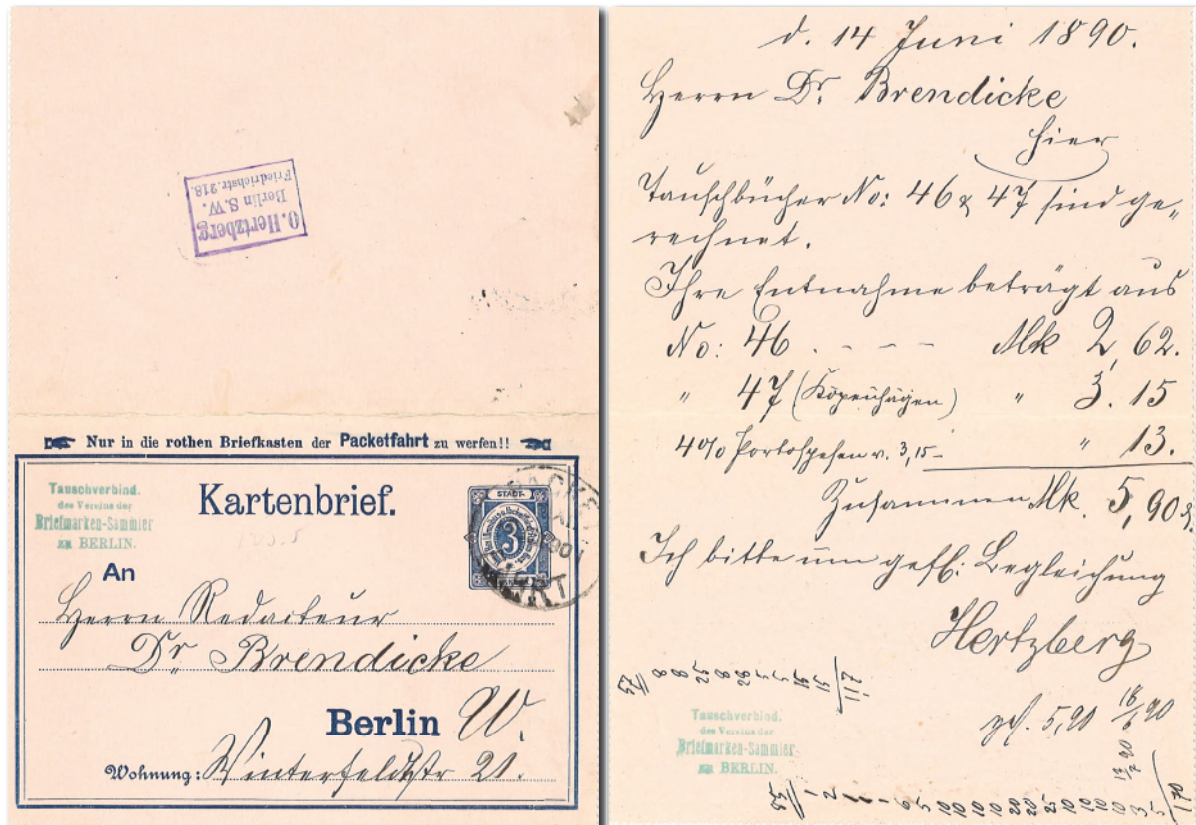 O. Hertzberg
Berlin S.W.
Friedrichstr. 218.
Nur in die rothen Briefkasten der Packetfahrt zu werfen!!
Tauschverbind.
des Vereins der
Briefmarken-Sammler
zu BERLIN.
Kartenbrief.
STADT-
3
An
Herrn Redacteur
Dr Brendicke
Berlin W.
Wohnung: Winterfeldtstr 21.
d. 14 Juni 1890.
Herrn Dr. Brendicke
hier
Tauschbücher No: 46 & 47 sind ge-
rechnet.
Ihre Entnahme beträgt aus
No: 46 . - - - Mk 2,62.
" 47 (Kopenhagen) " 3.15
4% Portospesen v. 3,15- " 13.
Zusammen Mk. 5,90
Ich bitte um gefl. Begleichung
Hertzberg
5,90 18/6 90
Tauschverbind.
des Vereins der
Briefmarken-Sammler
zu BERLIN.